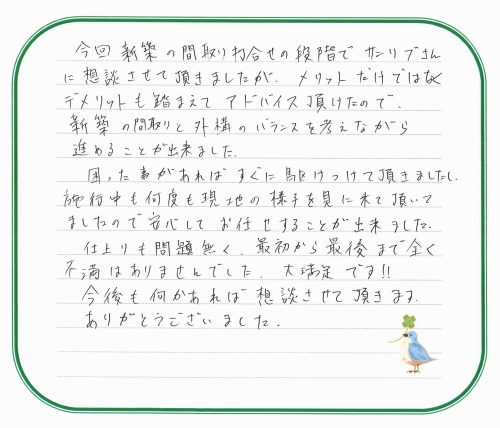 今回 新築の間取り打合せの段階で サンリブさん
に想談させて頂きましたが、メリットだけではなく
デメリットも踏まえて アドバイス頂けたので、
新築の間取りと外構のバランスを考えながら
進めることが出来ました。
困った事があれば すぐに駆けつけて頂きましたし、
施行中も何度も現地の様子を見に来て頂いて
ましたので安心して お任せすることが出来ました。
仕上りも問題無く、最初から最後まで全く
不満はありませんでした。大満足です!!
今後も何かあれば想談させて頂きます。
ありがとうございました。